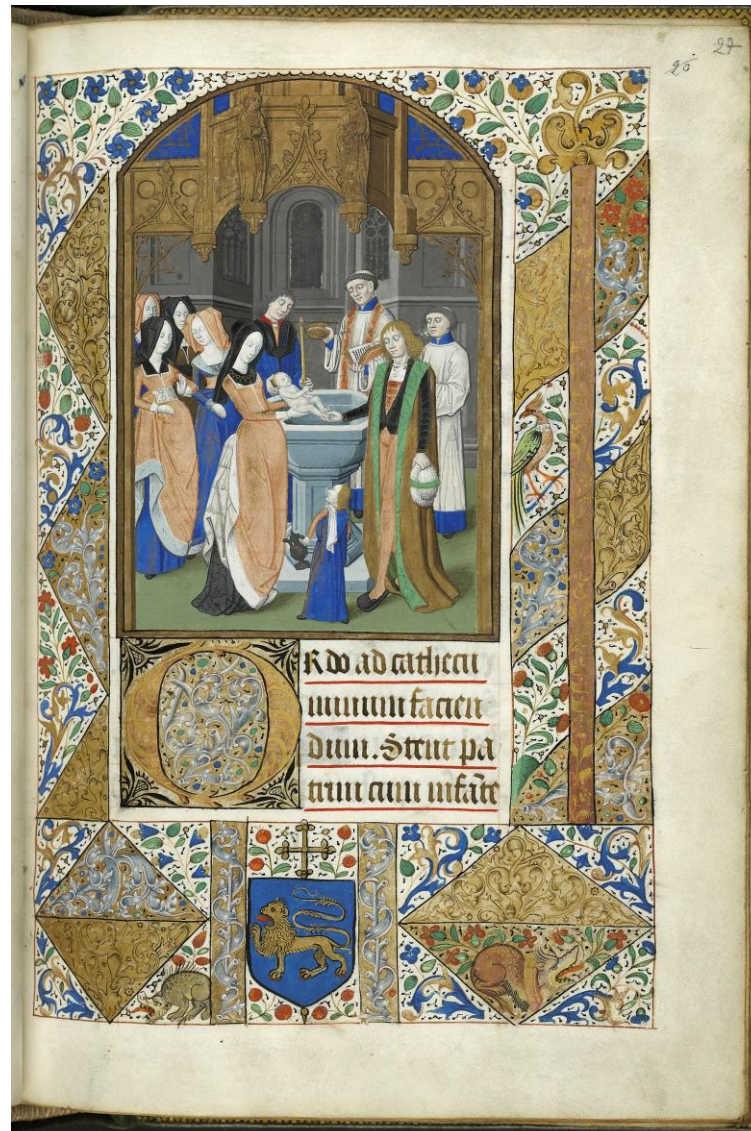 27
26
ORdo ad cathecu
minum facien
dum. Stent pa
trini cum infāte